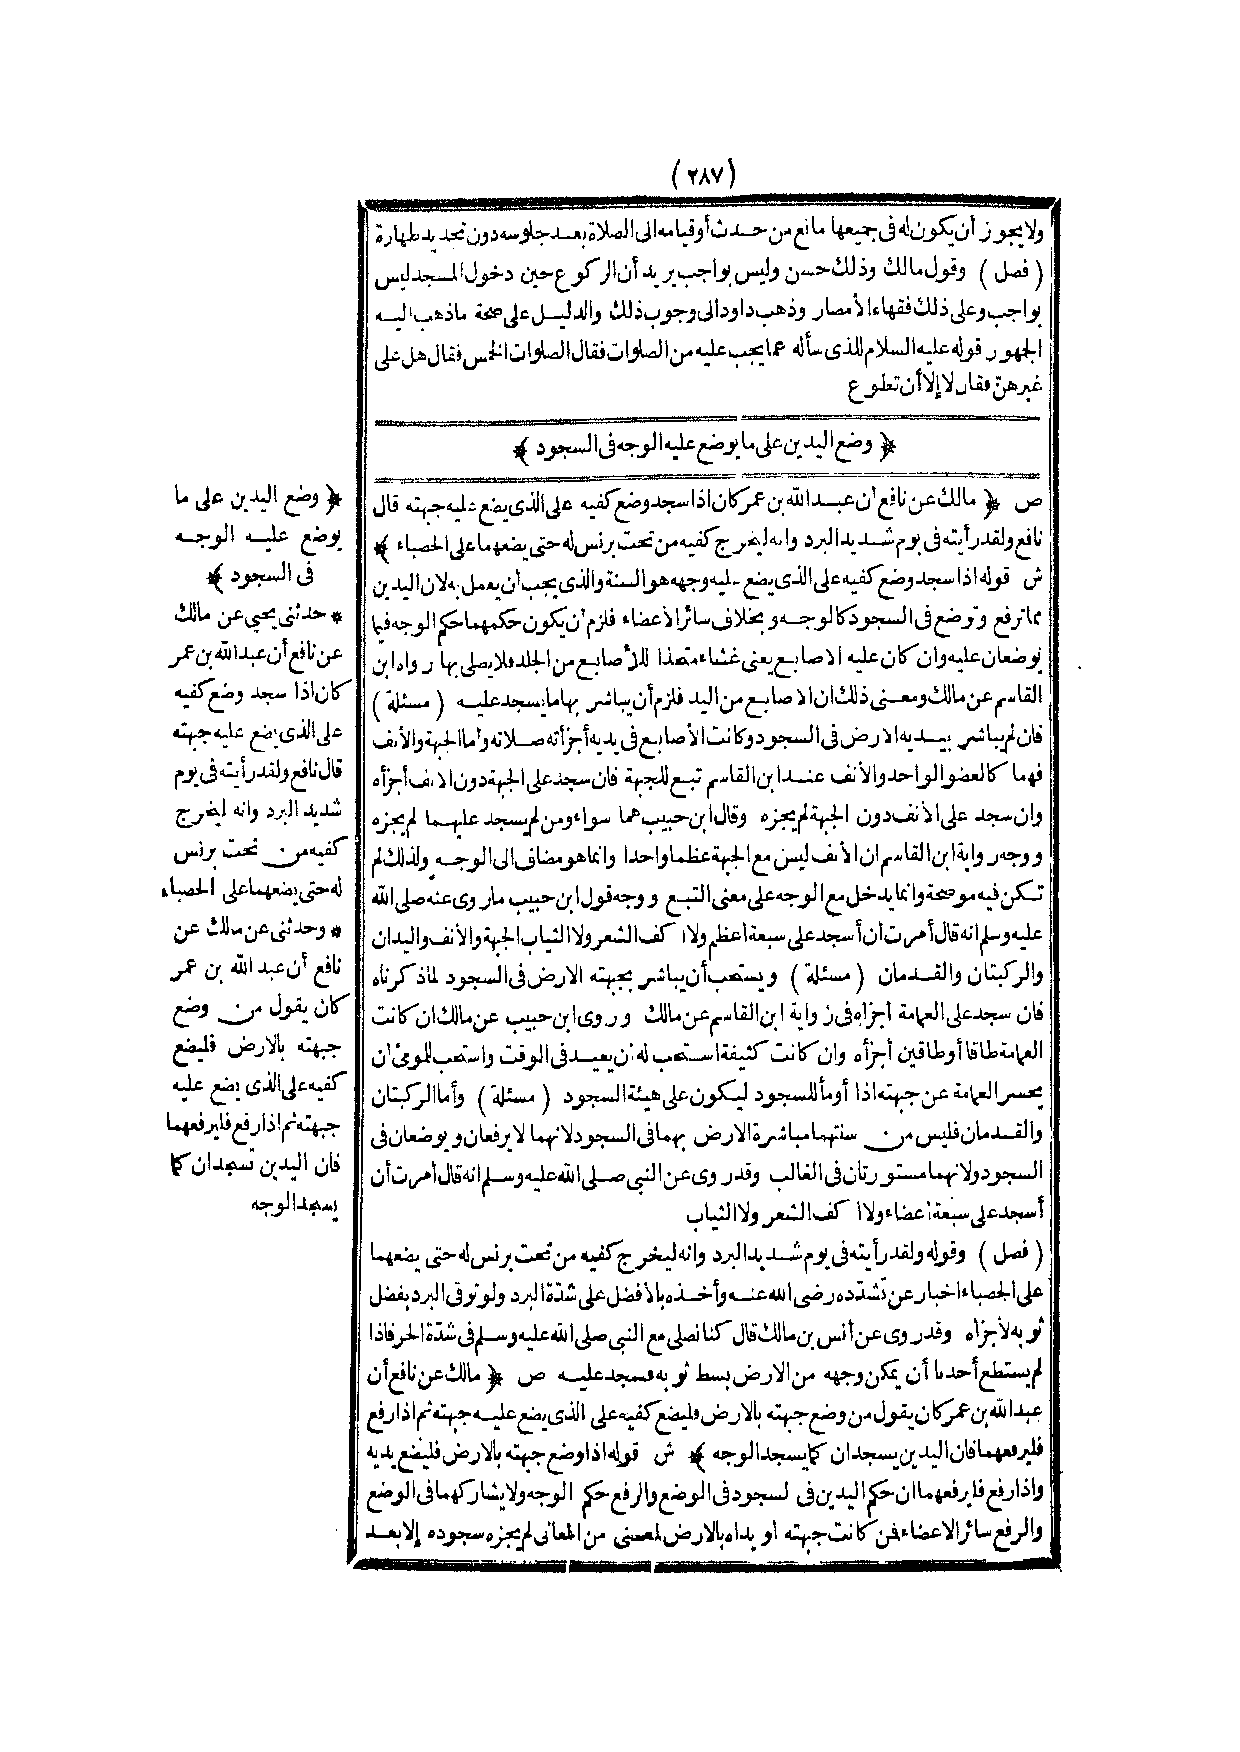 (٢٨٧)
ولا يجوز أن يكون له في جميعها مانع من حدث أو قيامه الى الصلاة بعد جلوسه دون تجديد طهارة
(فصل) وقول مالك وذلك حسن وليس بواجب يريد أن الركوع حين دخول المسجد ليس
بواجب وعلى ذلك فقهاء الأمصار وذهب داود الى وجوب ذلك والدليل على صحة ماذهب اليه
الجمهور قوله عليه السلام للذى سأله عما يجب عليه من الصلوات فقال الصلوات الخمس فقال هل على
غيرهنّ فقال لا إلا أن تطوع
﴿ وضع اليدين على ما يوضع عليه الوجه فى السجود ﴾
ص ﴿ مالك عن نافع أن عبد الله بن عمر كان اذا سجد وضع كفيه على الذى يضع عليه جبهته قال
نافع ولقد رأيته فى يوم شديد البرد وانه ليخرج كفيه من تحت برنس له حتى يضعهما على الحصباء ﴾
ش قوله اذا سجد وضع كفيه على الذى يضع عليه وجهه هو السنة والذى يجب أن يعمل به لان اليدين
مما ترفع وتوضع فى السجود كالوجه وبخلاف سائر الأعضاء فلزم أن يكون حكمهما حكم الوجه فيما
يوضعان عليه وان كان عليه الاصابع يعنى غشاء متخذا للأصابع من الجلد فلا يصلى بها رواه ابن
القاسم عن مالك ومعنى ذلك ان الاصابع من اليد فلزم أن يباشر بها ما يسجد عليه (مسئلة)
فان لم يباشر بيديه الارض فى السجود وكانت الأصابع فى يديه أجزأته صلاته وأما الجبهة والأنف
فهما كالعضو الواحد والأنف عند ابن القاسم تبع للجبهة فان سجد على الجبهة دون الانف أجزأه
وان سجد على الأنف دون الجبهة لم يجزه وقال ابن حبيب هما سواء ومن لم يسجد عليهما لم يجزه
ووجه رواية ابن القاسم ان الأنف ليس مع الجبهة عظما واحدا وانما هو مضاف الى الوجه ولذلك لم
تكن فيه موضحة وانما يدخل مع الوجه على معنى التبع ووجه قول ابن حبيب ما روى عنه صلى الله
عليه وسلم انه قال أمرت أن أسجد على سبعة أعظم ولا أكف الشعر ولا الثياب الجبهة والأنف واليدان
والركبتان والقدمان (مسئلة) ويستحب أن يباشر بجبهته الارض فى السجود لماذكرناه
فان سجد على العمامة أجزأه فى رواية ابن القاسم عن مالك وروى ابن حبيب عن مالك ان كانت
العمامة طاقا أوطاقين أجزأه وان كانت كثيفة استحب له أن يعيد فى الوقت واستحب للمومئ أن
يحسر العمامة عن جبهته اذا أومأ للسجود ليكون على هيئة السجود (مسئلة) وأما الركبتان
والقدمان فليس من سنتهما مباشرة الارض بهما فى السجود لانهما لا يرفعان ويوضعان فى
السجود ولانهما مستورتان فى الغالب وقدروى عن النبى صلى الله عليه وسلم انه قال أمرت أن
أسجد على سبعة أعضاء ولا أكف الشعر ولا الثياب
(فصل) وقوله ولقد رأيته فى يوم شديد البرد وانه ليخرج كفيه من تحت برنس له حتى يضعهما
على الحصباء اخبار عن تشدده رضى الله عنه وأخذه بالأفضل على شدة البرد ولو توقى البرد بفضل
ثوبه لأجزاه وقدروى عن أنس بن مالك قال كنا نصلى مع النبى صلى الله عليه وسلم فى شدة الحر فاذا
لم يستطع أحدنا أن يمكن وجهه من الارض بسط ثوبه فسجد عليه ص ﴿ مالك عن نافع أن
عبد الله بن عمر كان يقول من وضع جبهته بالارض فليضع كفيه على الذى يضع عليه جبهته ثم اذا رفع
فليرفعهما فان اليدين يسجدان كما يسجد الوجه ﴾ ش قوله اذا وضع جبهته بالارض فليضع يديه
واذا رفع فليرفعهما ان حكم اليدين فى السجود فى الوضع والرفع حكم الوجه ولا يشاركهما فى الوضع
والرفع سائر الاعضاء فمن كانت جبهته أو يداه بالارض لمعنى من المعانى لم يجزه سجوده إلا بعد
﴿ وضع اليدين على ما
يوضع عليه الوجه
فى السجود ﴾
* حدثنى يحيى عن مالك
عن نافع أن عبد الله بن عمر
كان اذا سجد وضع كفيه
على الذى يضع عليه جبهته
قال نافع ولقد رأيته فى يوم
شديد البرد وانه ليخرج
كفيه من تحت برنس
له حتى يضعهما على الحصباء
* وحدثنى عن مالك عن
نافع أن عبد الله بن عمر
كان يقول من وضع
جبهته بالارض فليضع
كفيه على الذى يضع عليه
جبهته ثم اذا رفع فليرفعهما
فان اليدين تسجدان كما
يسجد الوجه